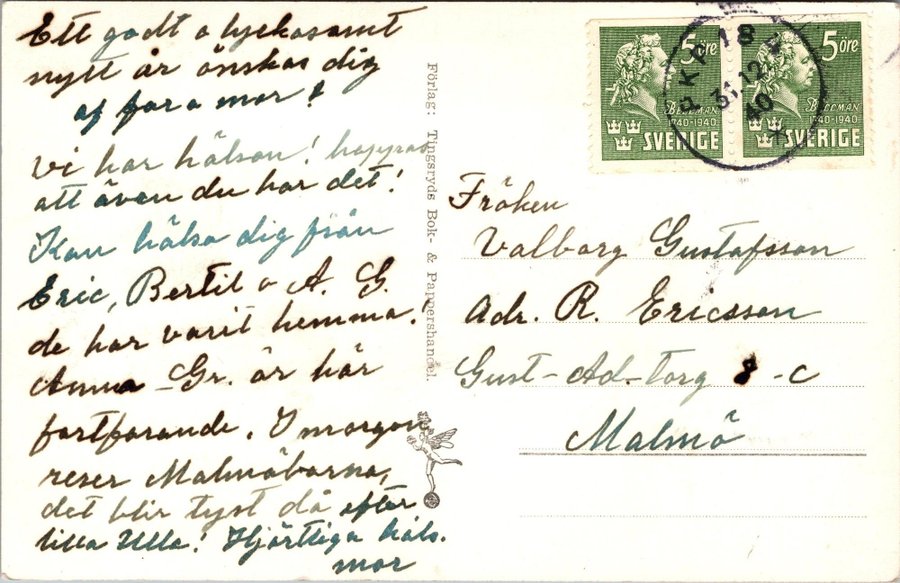 Ett godt o lyckosamt
nytt år önskas dig
af far o mor!
vi har hälsan! hoppas
att även du har det!
Kan hälsa dig från
Eric, Bertil o A. G.
de har varit hemma!
Anna - Gr. är här
fortfarande. I morgon
reser Malmöbarna,
det blir tyst då efter
lilla Ulla! Hjärtliga häls.
mor
Förlag: Tingsryds Bok- & Pappershandel.
5 öre
BELLMAN
1740-1940
SVERIGE
5 öre
BELLMAN
1740-1940
SVERIGE
PKP 18
31.12
40
Fröken
Valborg Gustafsson
Adr. R. Ericsson
Gust-Ad-Torg 8 -c
Malmö